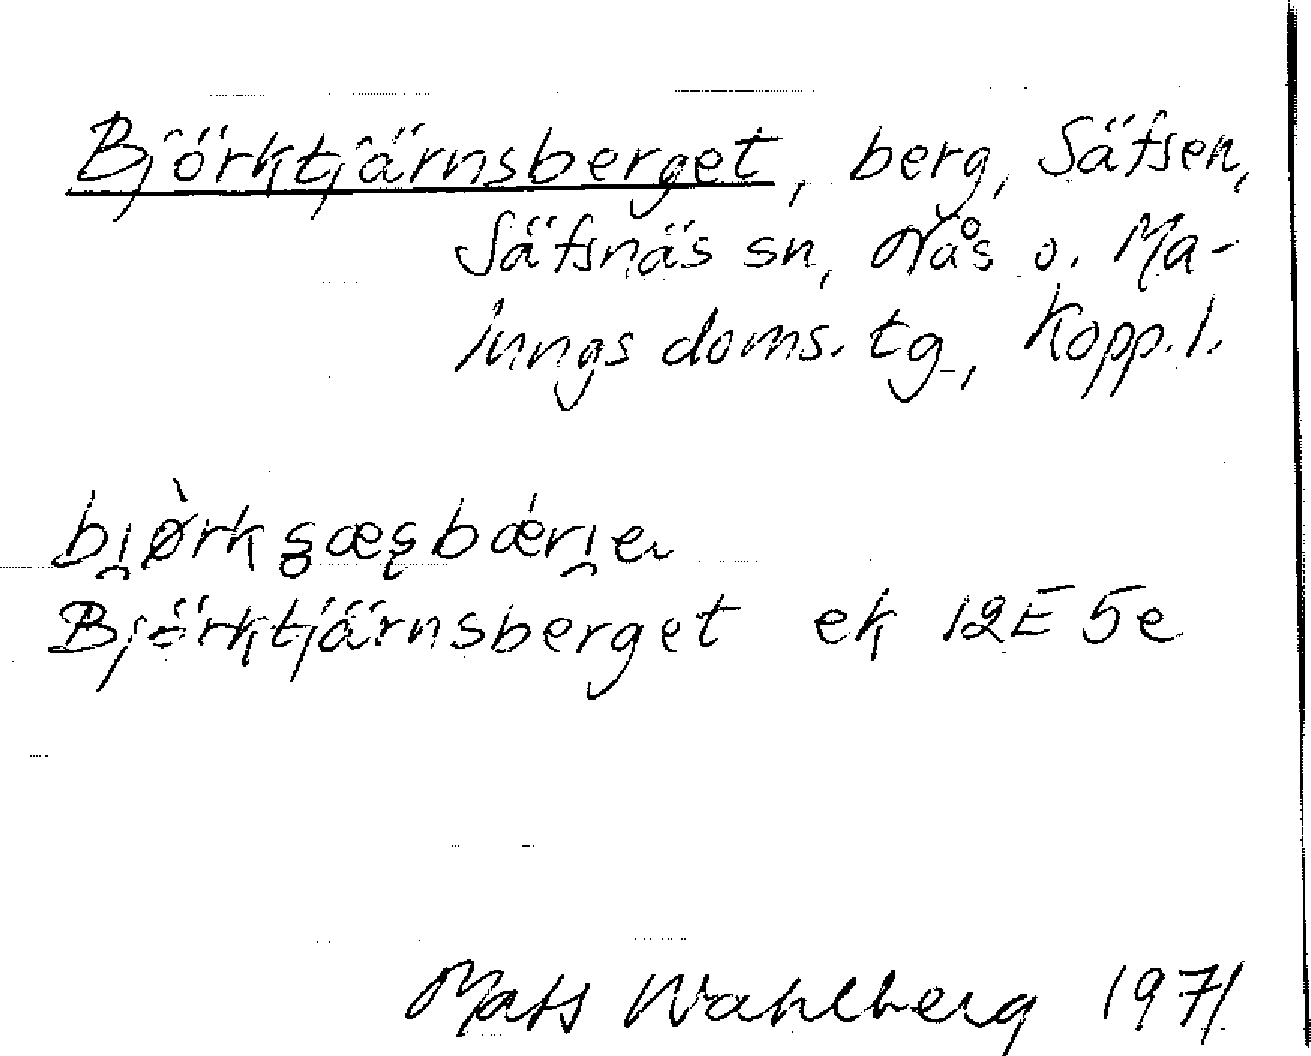 Björktjärnsberget, berg, Säfsen,
Säfsnäs sn, Nås o. Ma-
lungs doms. tg, Kopp. l.
Björktjärnsberget ek 12E 5e
Mats Wahlberg 1971